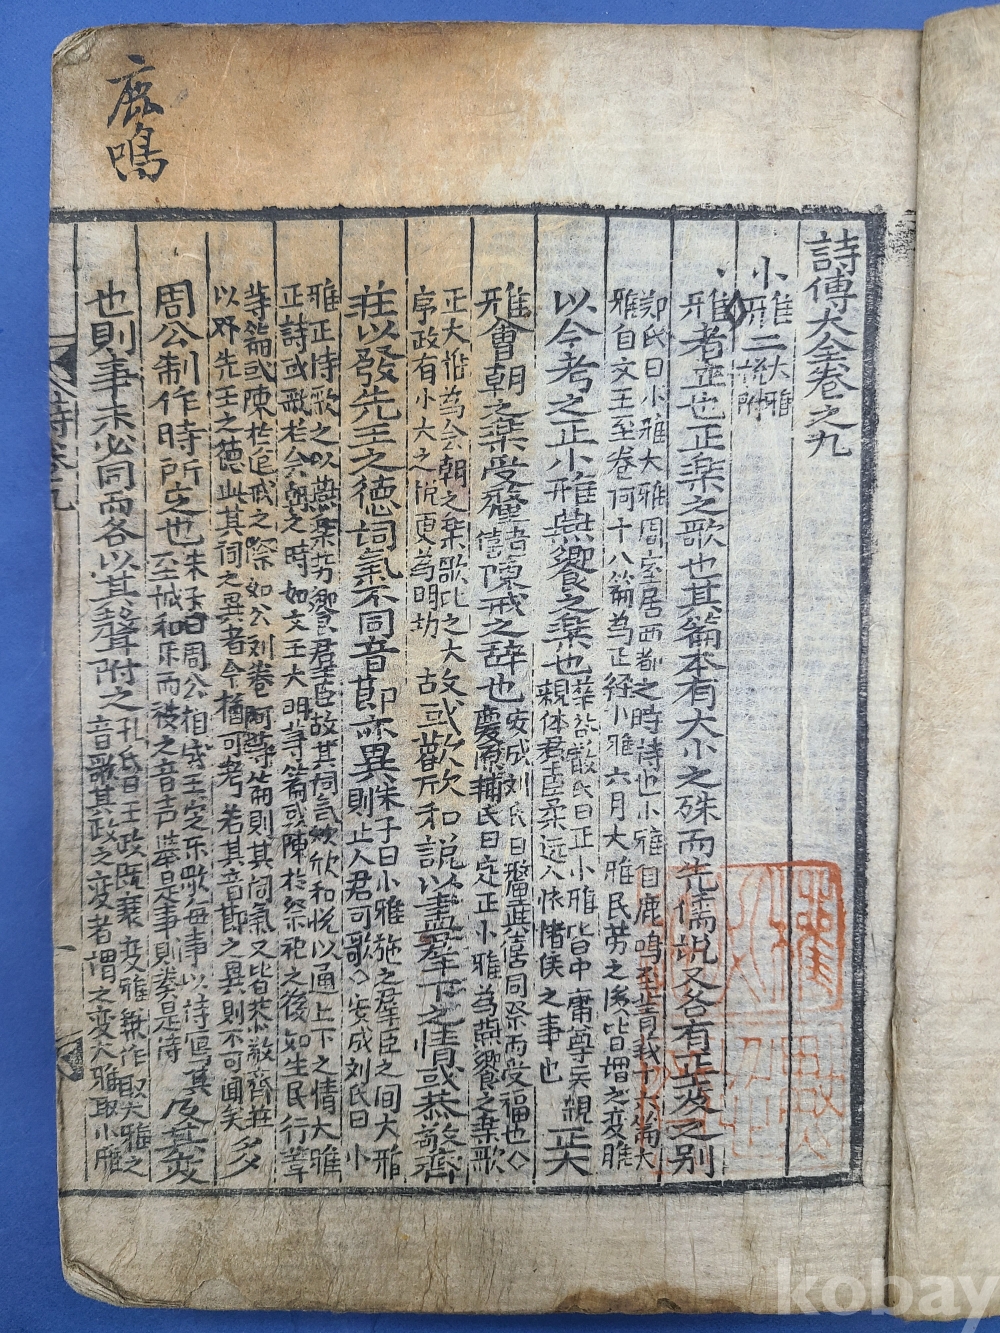 鹿鳴
詩傳大全卷之九
小雅二 大雅說附
雅者正也正楽之歌也其篇本有大小之殊而先儒說又各有正变之别
鄭氏曰小雅大雅周室居西都之時詩也小雅自鹿鳴至菁菁我十六篇大
雅自文王至卷阿十八篇为正経小雅六月大雅民劳之後皆谓之变雅
以今考之正小雅燕饗之楽也 華谷嚴氏曰正小雅皆中庸尊夭親
親体君臣柔远人怀諸侯之事也 正大
雅會朝之楽受釐陳戒之辞也 安成刘氏曰釐与僖同祭而受福也
慶源輔氏曰定正小雅为燕饗之楽歌
正大雅为会朝之楽歌比之大
序政有小大之說更为明切 故或欢欣和說以盡羣下之情或恭敬齊
莊以發先王之德詞氣不同音節亦異 朱子曰小雅施之羣臣之间大雅
則止人君可歌 安成刘氏曰小
雅正詩歌之以燕楽劳饗君臣故其詞气欢欣和悦以通上下之情大雅
正詩或歌於会朝之時如文王大明等篇或陳於祭祀之後如生民行葦
等篇或陳於追戒之際如公刘卷阿等篇則其詞氣又皆恭敬齊莊
以發先王之德此其詞之異者今猶可考若其音節之異則不可聞矣 多
周公制作時所定也 朱子曰周公相成王定乐歌每事以詩寫其
至诚和乐而被之音声举是事則奏是诗 及其变
也則事未必同而各以其聲附之 孔氏曰王政既衰变雅兼作取大雅之
音歌其政之变者谓之变大雅取小雅
詩卷九
kobay